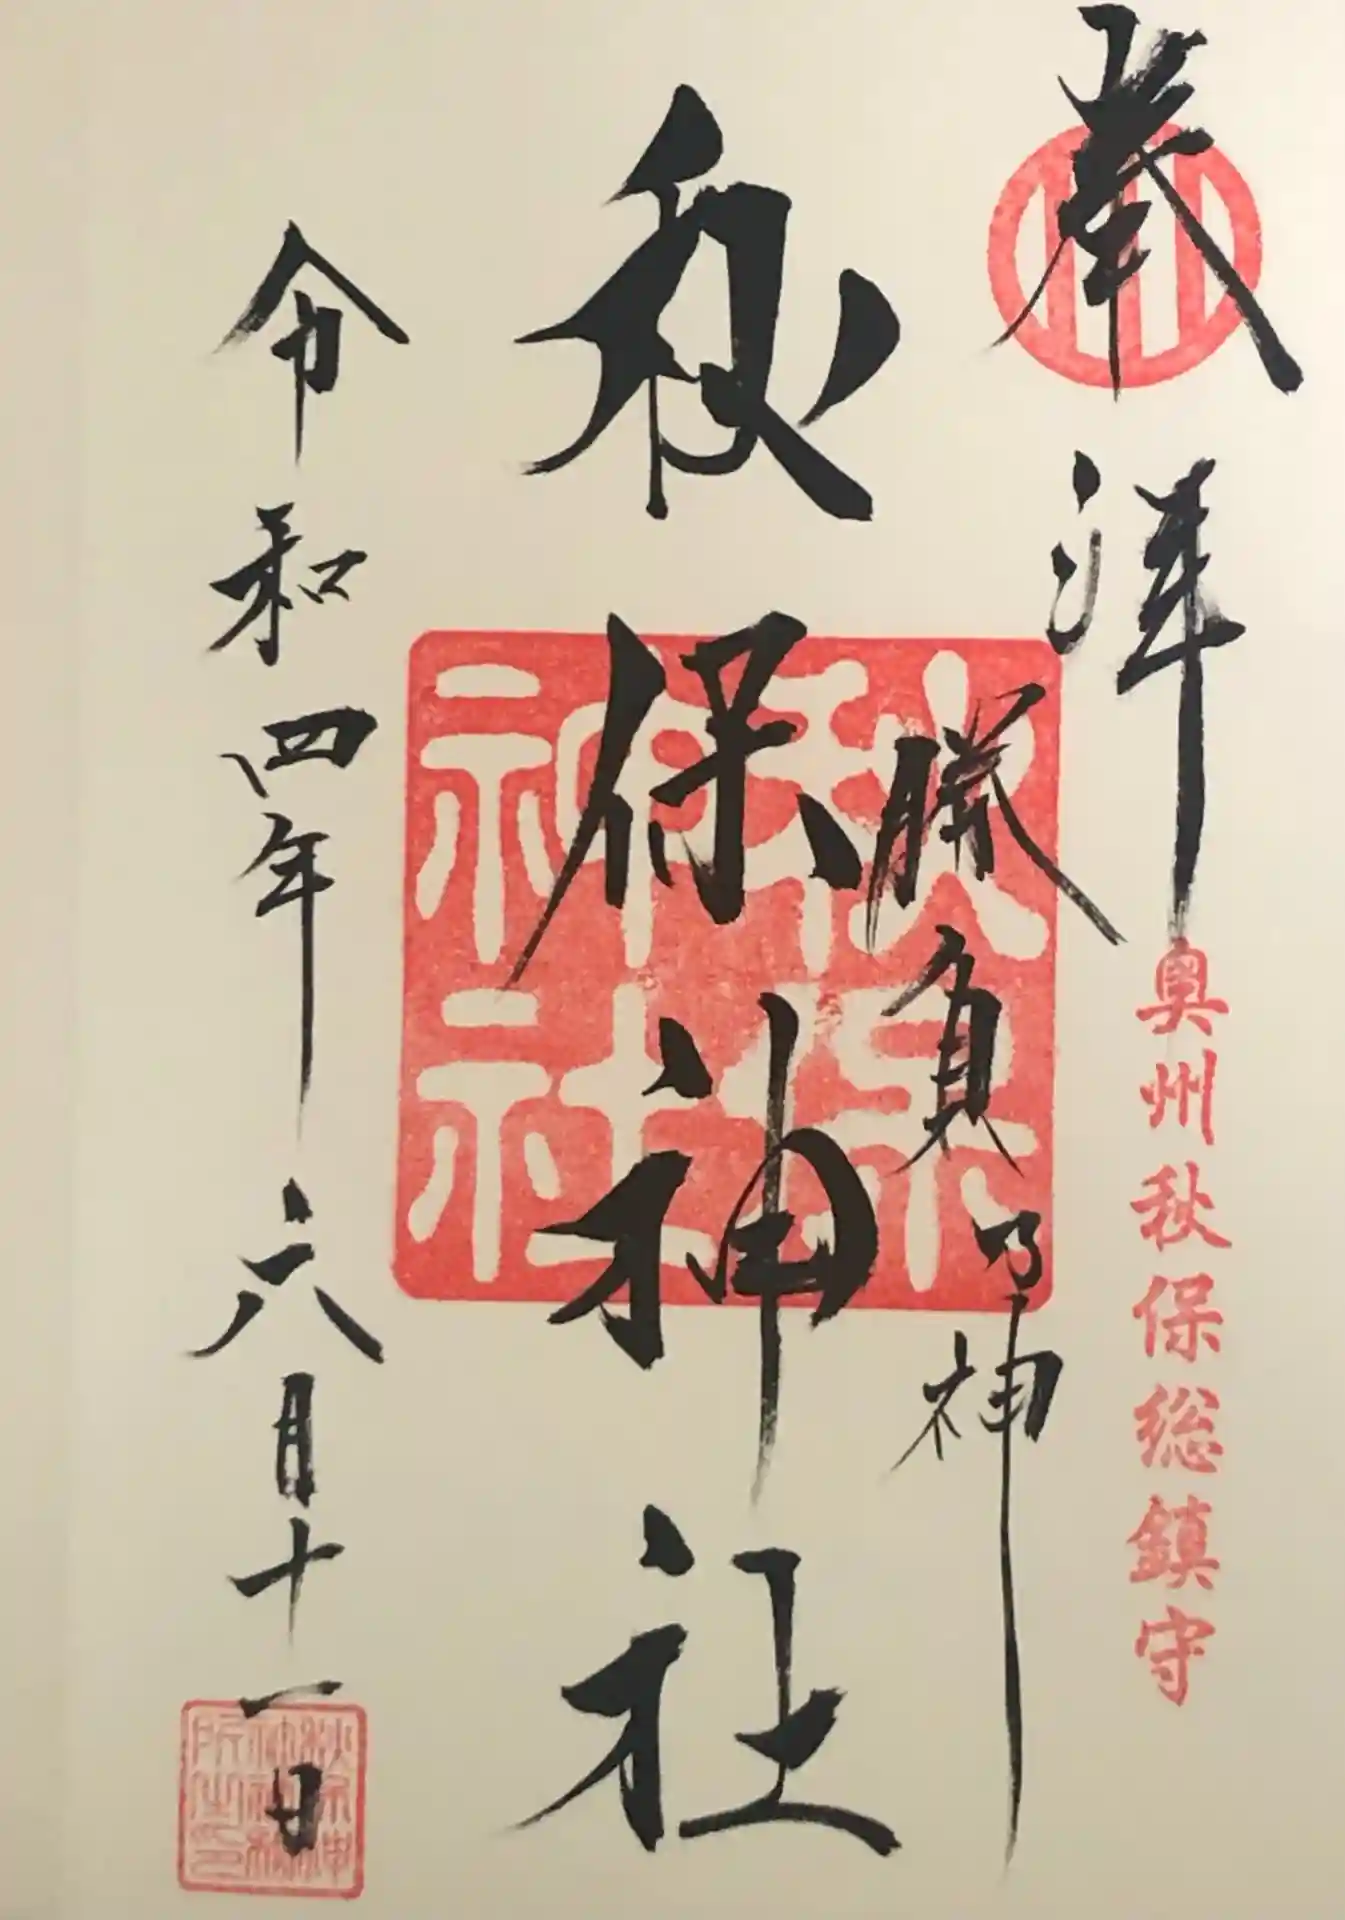 奉拝
奥州秋保総鎮守
勝負の神
秋保神社
秋保神社
令和四年六月十一日